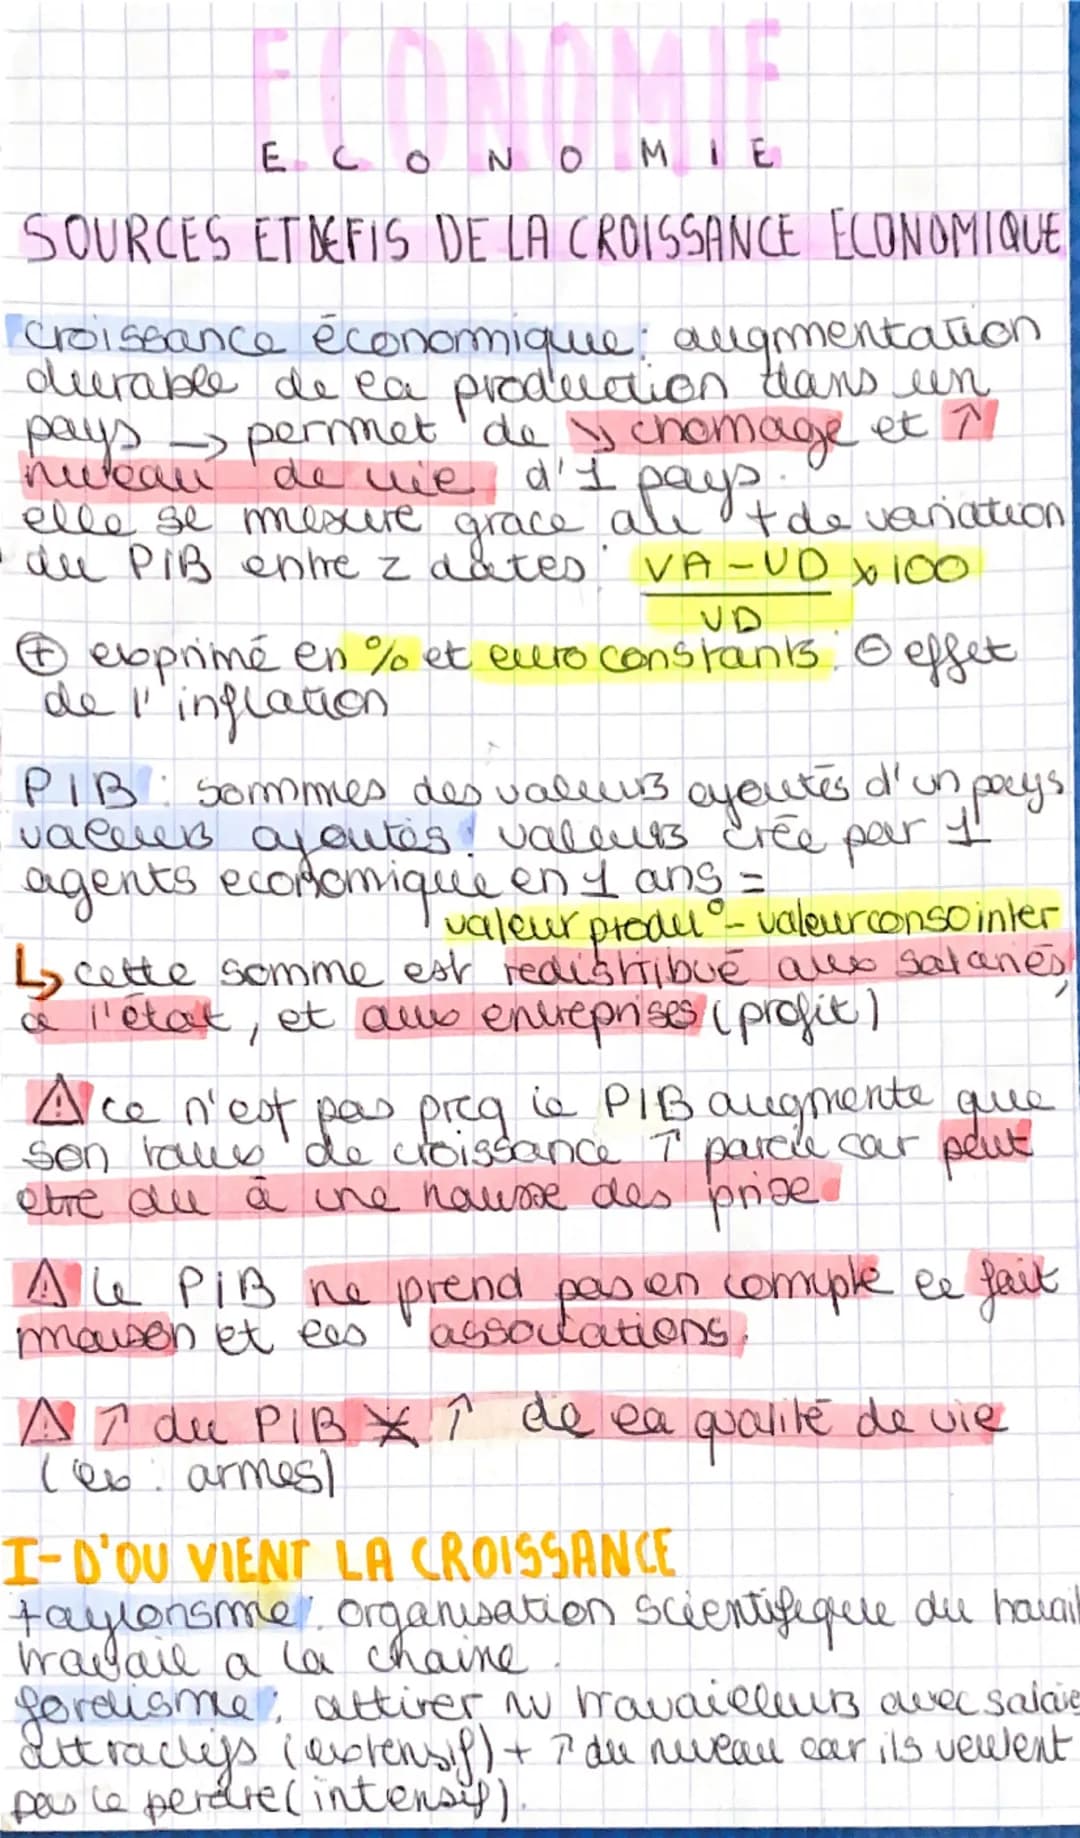 ECONOMIE
E C O N O M I E
SOURCES ET DEFIS DE LA CROISSANCE ECONOMIQUE
croissance économique: augmentation
durable de la production dans un
pays → permet de ↘ chomage et ↑
niveau de vie d'1 pays.
elle se mesure grace au t de variation
du PIB entre 2 dates: VA-VD x100
VD
⊕ exprimé en % et euro constants: ⊖ effet
de l'inflation
PIB: sommes des valeurs ajoutés d'un pays
valeurs ajoutés: valeurs crée par 1
agents economique en 1 ans =
valeur produ° - valeur conso inter
↳ cette somme est redistribué aux salariés,
à l'état, et aux entreprises (profit)
⚠ ce n'est pas prcq le PIB augmente que
son taux de croissance ↑ pareil car peut
etre du à une hausse des prix
⚠ le PIB ne prend pas en compte le fait
maison et les associations.
⚠ ↑ du PIB ≠ ↑ de la qualité de vie
(ex: armes)
I-D'OU VIENT LA CROISSANCE
taylorisme: organisation scientifique du travail
travail a la chaine.
fordisme: attirer nv travailleurs avec salaire
attractifs (extensif) + ↑ du niveau car ils veulent
pas le perdre (intensif).